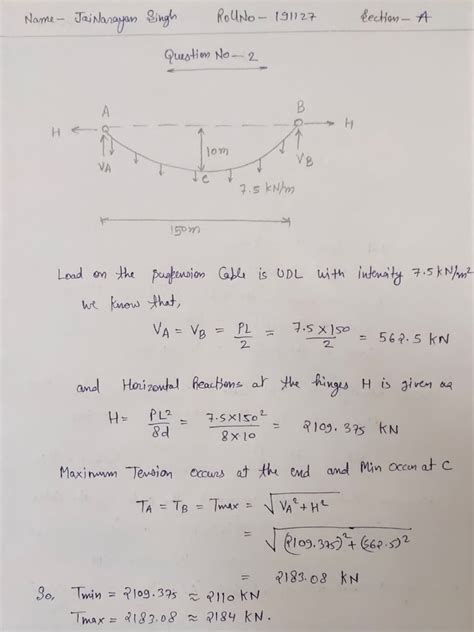 Name- JaiNarayan Singh RollNo- 191127 Section- A
Question No- 2
A B
H H
VA 10m VB
C
7.5 KN/m
150m
Load on the suspension Cable is UDL with intensity 7.5 KN/m²
we know that,
VA = VB = PL/2 = 7.5×150/2 = 562.5 KN
and Horizontal Reactions at the hinges H is given as
H= PL²/8d = 7.5×150²/8×10 = 2109.375 KN
Maximum Tension occurs at the end and Min Occur at C
TA = TB = Tmax = √VA² + H²
= √(2109.375)² + (562.5)²
= 2183.08 KN
So, Tmin = 2109.375 ≈ 2110 KN
Tmax = 2183.08 ≈ 2184 KN.